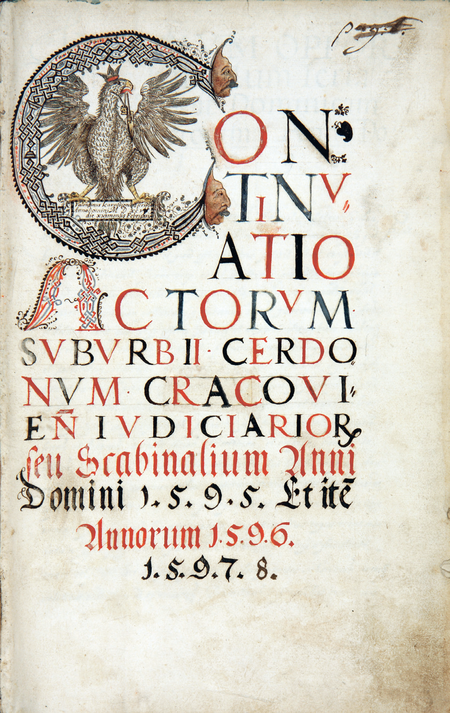 Pag. 1.
CON-
TINV
ATIO
ACTORVM
SVBVRBII · CERDO
NVM · CRACOVI-
EÑ IVDICIARIOR
seu Scabinalium Anni
Domini 1.5.9.5. Et itē
Annorum 1.5.9.6.
1.5.9.7.8.